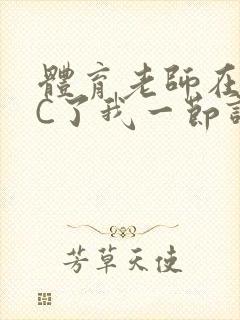 體育老師在
C了我一節
芳草天使